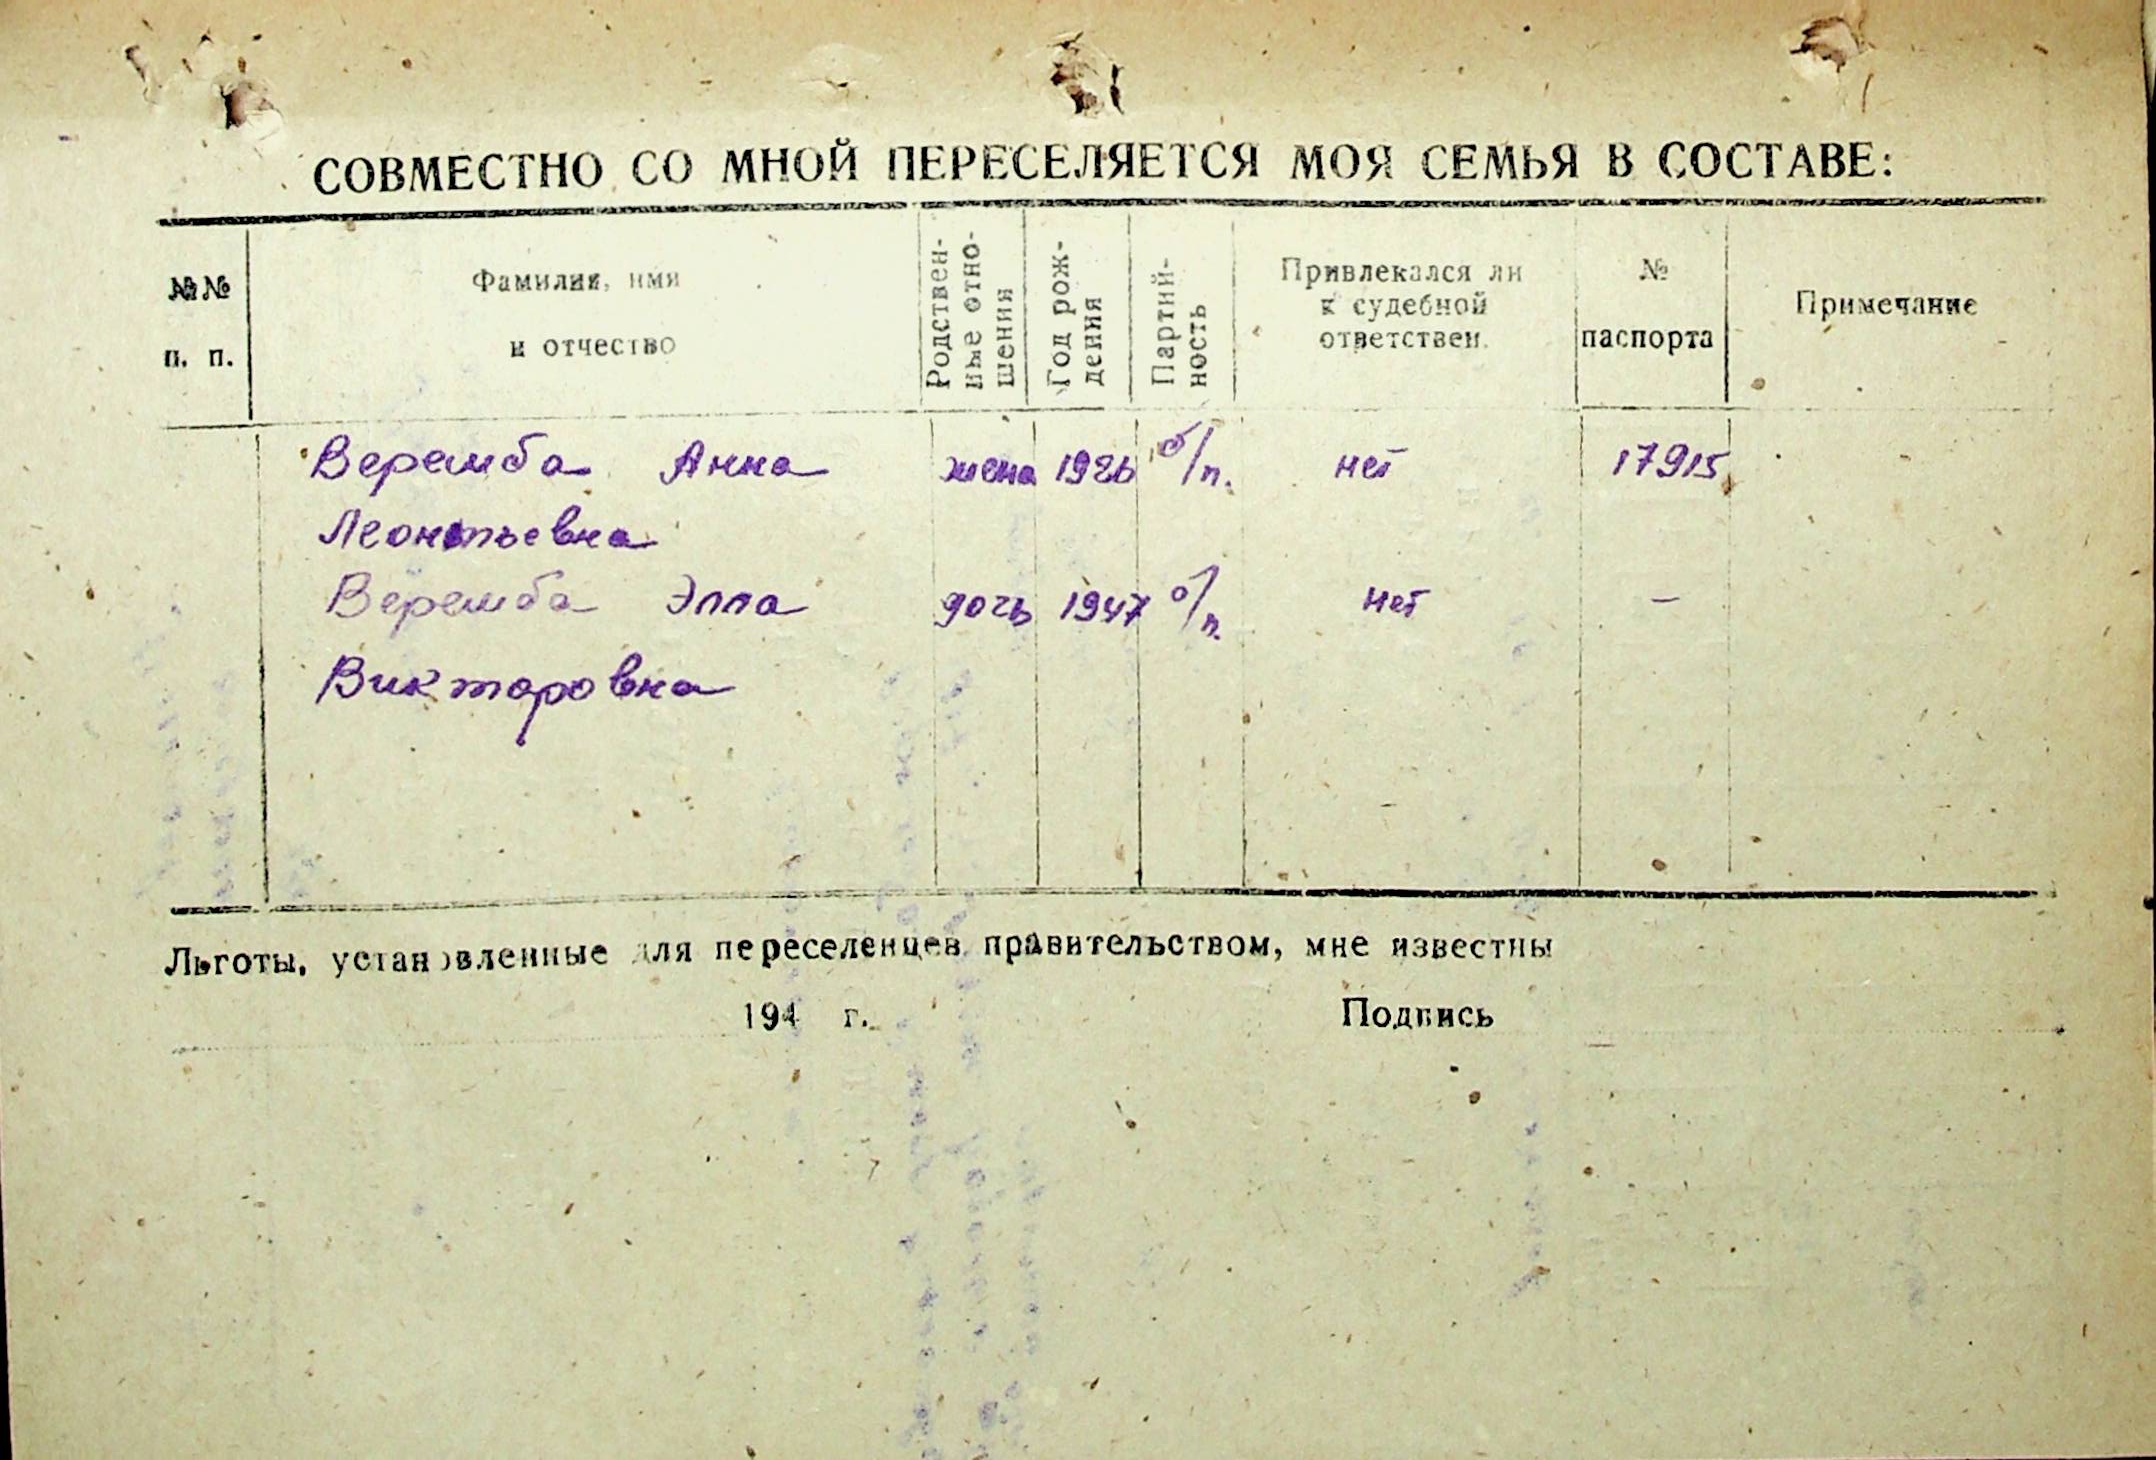 СОВМЕСТНО СО МНОЙ ПЕРЕСЕЛЯЕТСЯ МОЯ СЕМЬЯ В СОСТАВЕ:
№№ п. п.
Фамилия, имя и отчество
Родствен-ные отно-шения
Год рож-дения
Партий-ность
Привлекался ли к судебной ответствен.
№ паспорта
Примечание
Веремба Анна жена 1926 б/п. нет 17915
Леонтьевна
Веремба Элла дочь 1947 б/п. нет –
Викторовна
Льготы, установленные для переселенцев правительством, мне известны
194 г. Подпись